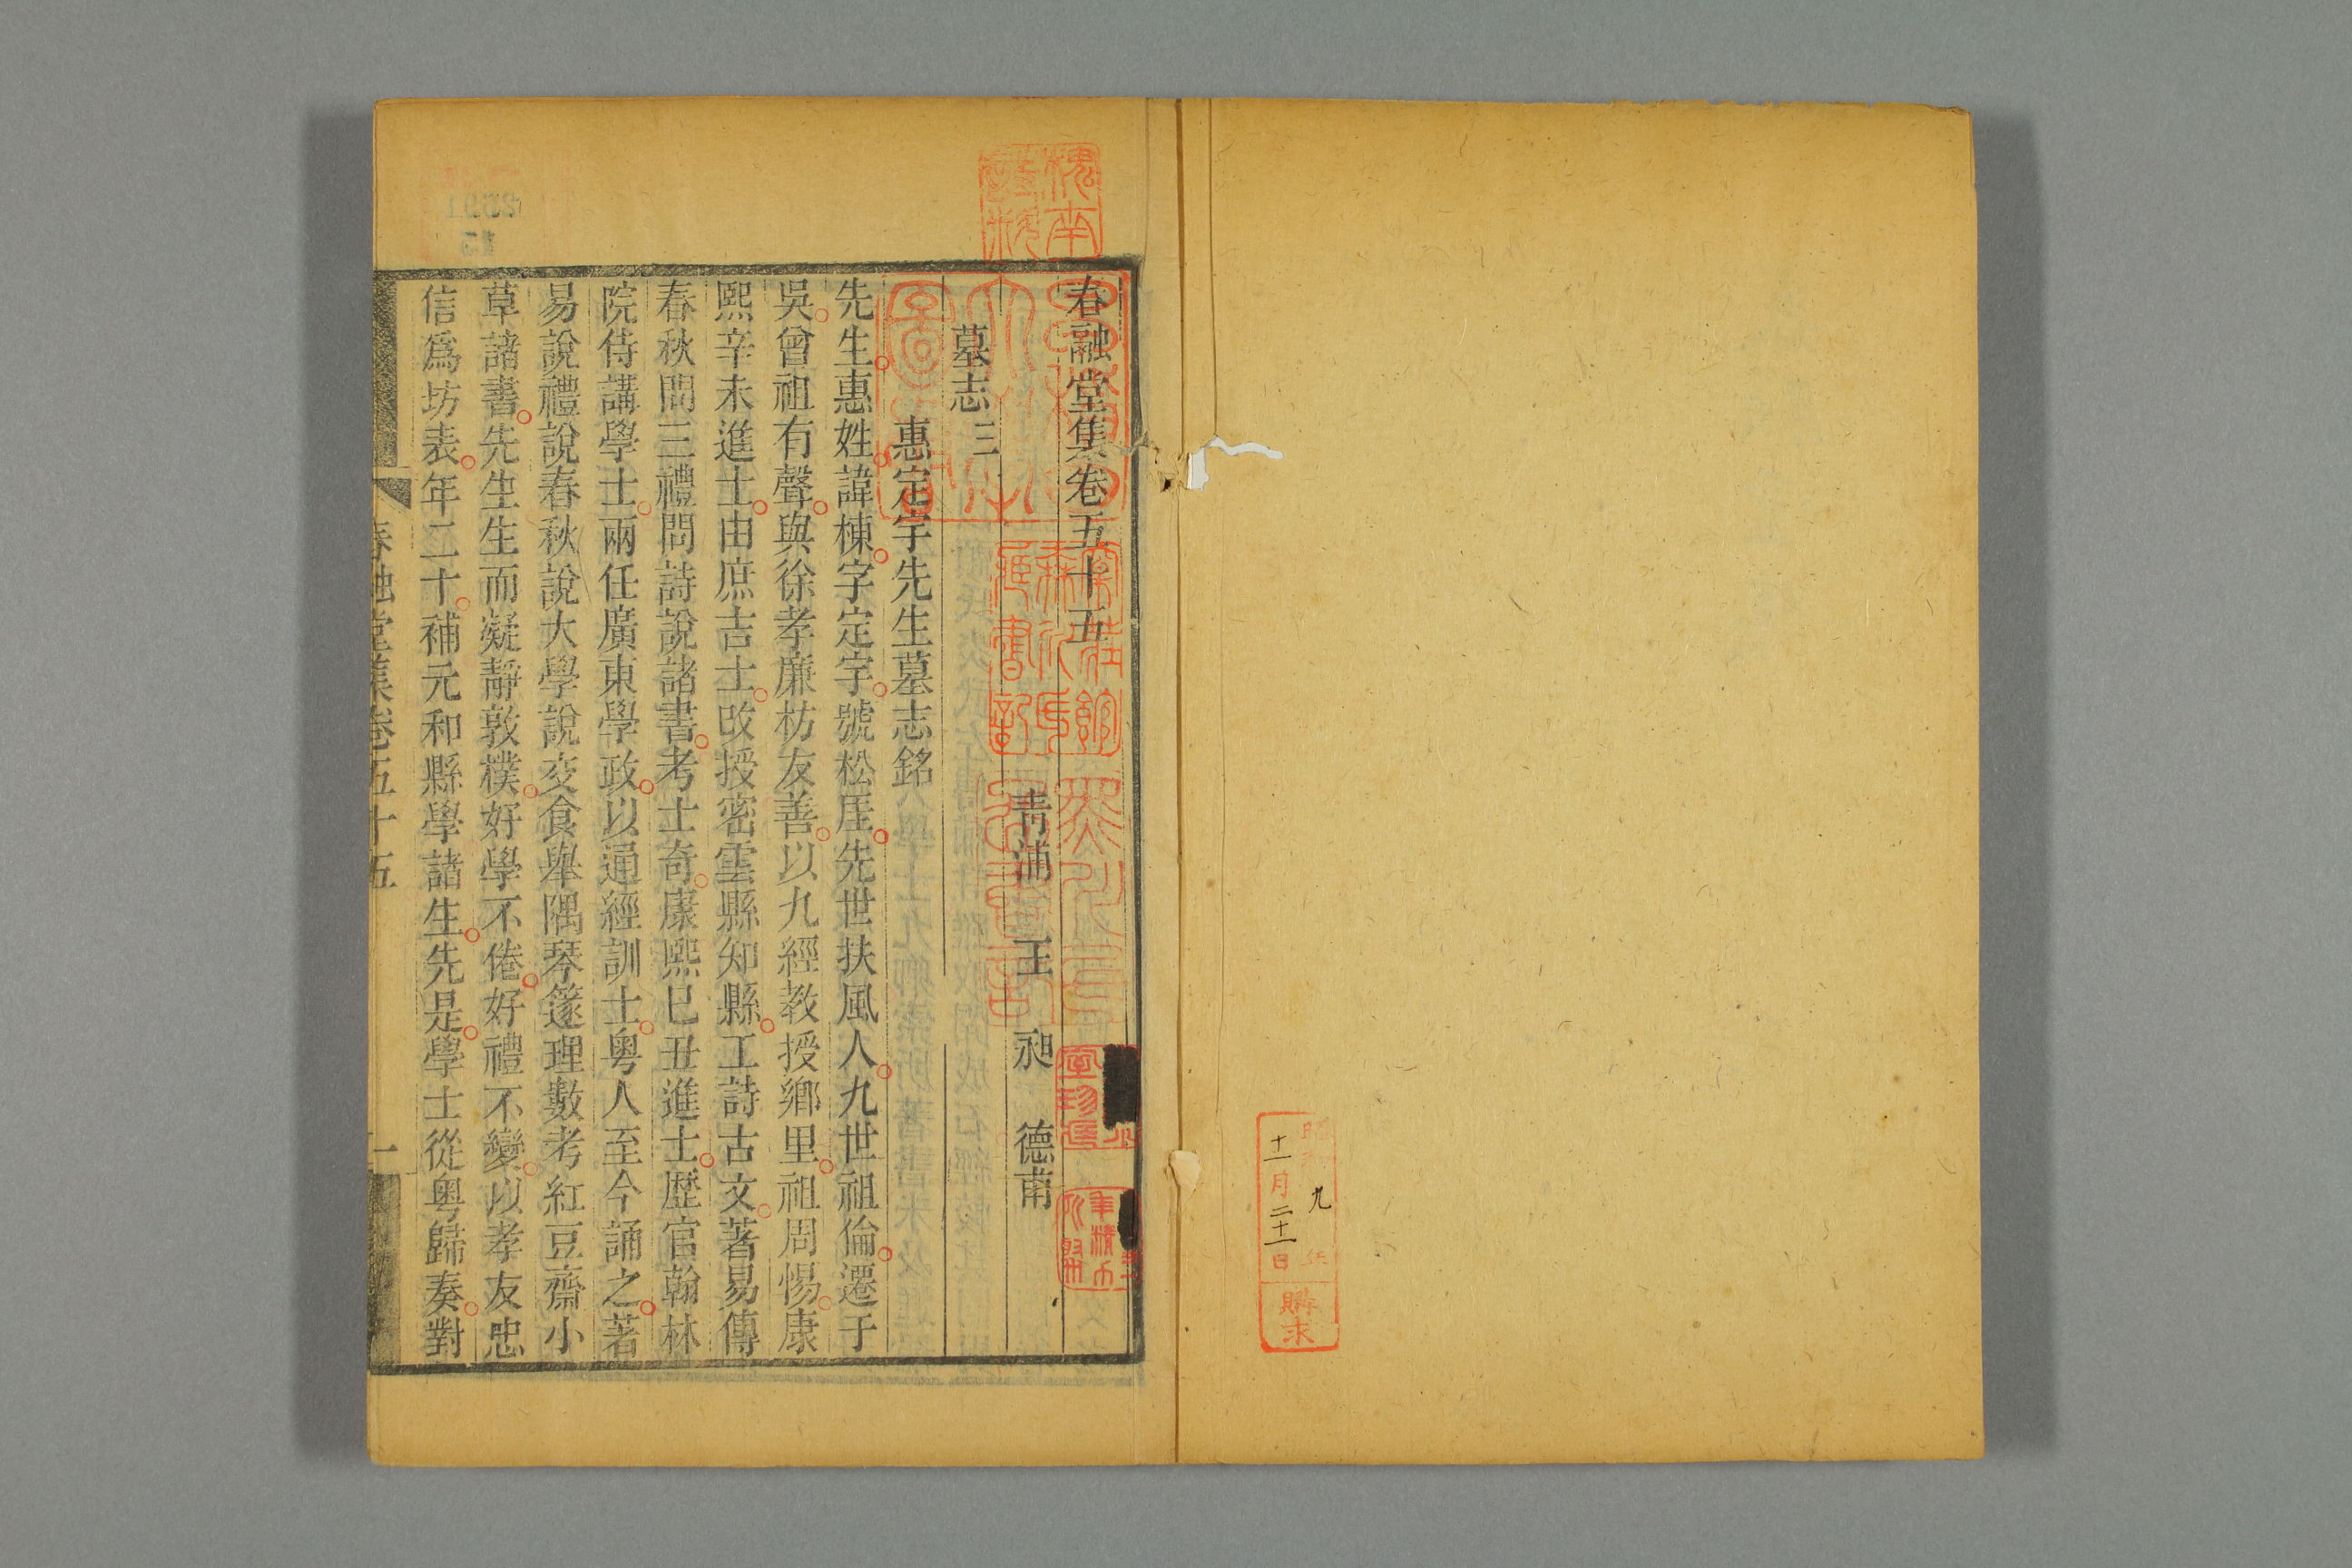 十一月二十一日
九
購求
春融堂集卷五十五
青浦 王 昶 德甫
墓志三
惠定宇先生墓志銘
先生惠姓諱棟字定宇號松厓先世扶風人九世祖倫遷于
吳曾祖有聲與徐孝廉枋友善以九經教授鄉里祖周惕康
熙辛未進士由庶吉士改授密雲縣知縣工詩古文著易傳
春秋問三禮問詩說諸書考士奇康熙巳丑進士歷官翰林
院侍講學士兩任廣東學政以通經訓士粵人至今誦之著
易說禮說春秋說大學說交食舉隅琴篴理數考紅豆齋小
草諸書先生生而凝靜敦樸好學不倦好禮不變以孝友忠
信爲坊表年二十補元和縣學諸生先是學士從粵歸奏對
春融堂集卷五十五
一